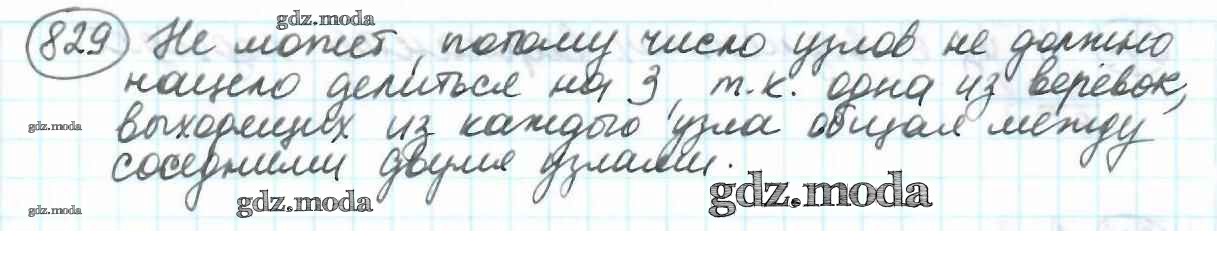 gdz.moda
829 Не может, потому число узлов не должно
нацело делиться на 3, т.к. одна из верёвок,
gdz.moda
выходящих из каждого узла общая между
соседними двумя узлами.
gdz.moda
gdz.moda
gdz.moda